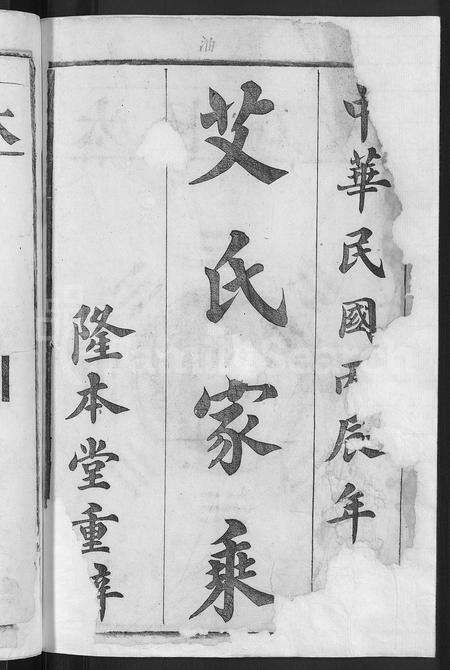 中華民國丙辰年
艾氏家乘
隆本堂重
油